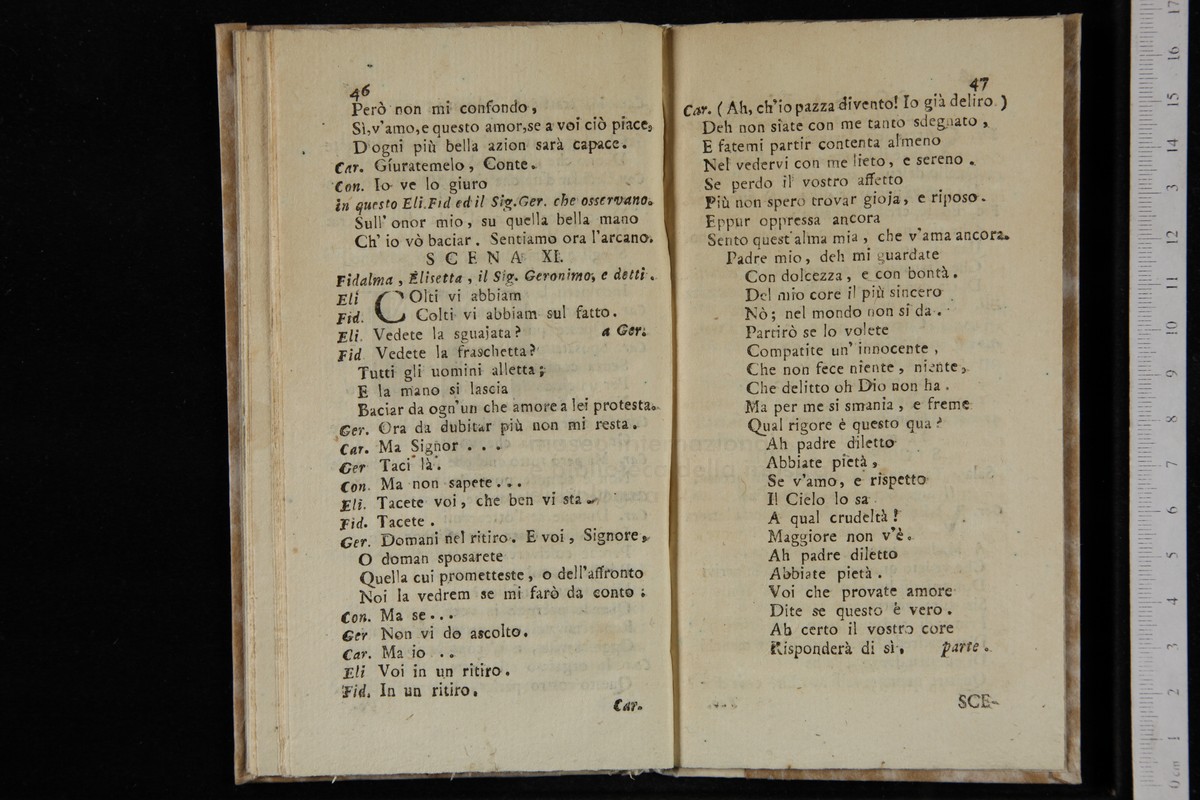 46
Però non mi confondo,
Sì, v'amo, e questo amor, se a voi ciò piace,
D'ogni più bella azion sarà capace.
Car. Giuratemelo, Conte.
Con. Io ve lo giuro
in questo Eli. Fid ed il Sig. Ger. che osservano.
Sull' onor mio, su quella bella mano
Ch' io vò baciar. Sentiamo ora l'arcano.
SCENA XI.
Fidalma, Elisetta, il Sig. Geronimo, e detti.
Eli COlti vi abbiam
Fid. Colti vi abbiam sul fatto.
Eli. Vedete la sguajata? a Ger.
Fid Vedete la fraschetta?
Tutti gli uomini alletta;
E la mano si lascia
Baciar da ogn'un che amore a lei protesta.
Ger. Ora da dubitar più non mi resta.
Car. Ma Signor . . .
Ger Taci là.
Con. Ma non sapete...
Eli. Tacete voi, che ben vi sta.
Fid. Tacete.
Ger. Domani nel ritiro. E voi, Signore,
O doman sposarete
Quella cui prometteste, o dell'affronto
Noi la vedrem se mi farò da conto;
Con. Ma se...
Ger Non vi do ascolto.
Car. Ma io ..
Eli Voi in un ritiro.
Fid. In un ritiro.
Car.
47
Car. (Ah, ch'io pazza divento! Io già deliro.)
Deh non siate con me tanto sdegnato,
E fatemi partir contenta almeno
Nel vedervi con me lieto, e sereno.
Se perdo il vostro affetto
Più non spero trovar gioja, e riposo.
Eppur oppressa ancora
Sento quest'alma mia, che v'ama ancora.
Padre mio, deh mi guardate
Con dolcezza, e con bontà.
Del mio core il più sincero
Nò; nel mondo non si da.
Partirò se lo volete
Compatite un' innocente,
Che non fece niente, niente,
Che delitto oh Dio non ha.
Ma per me si smania, e freme
Qual rigore è questo qua?
Ah padre diletto
Abbiate pietà,
Se v'amo, e rispetto
Il Cielo lo sa
A qual crudeltà!
Maggiore non v'è.
Ah padre diletto
Abbiate pietà.
Voi che provate amore
Dite se questo è vero.
Ah certo il vostro core
Risponderà di sì. parte.
SCE-